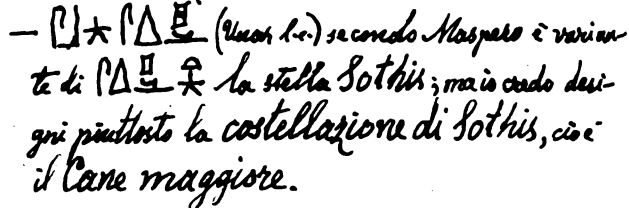 — (Unas l.c.) secondo Maspero è varian-
te di la stella Sothis; ma io credo desi-
gni piuttosto la costellazione di Sothis, cioè
il Cane maggiore.